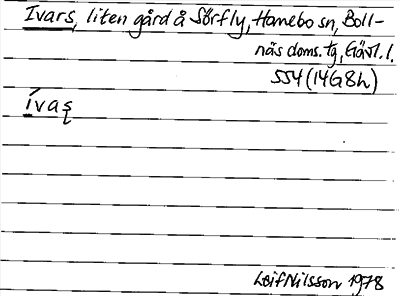 Ivars, liten gård å Sörfly, Hanebo sn, Boll-
näs doms. tg, Gävl. l.
554 (14G8h)
ívaʂ
Leif Nilsson 1978